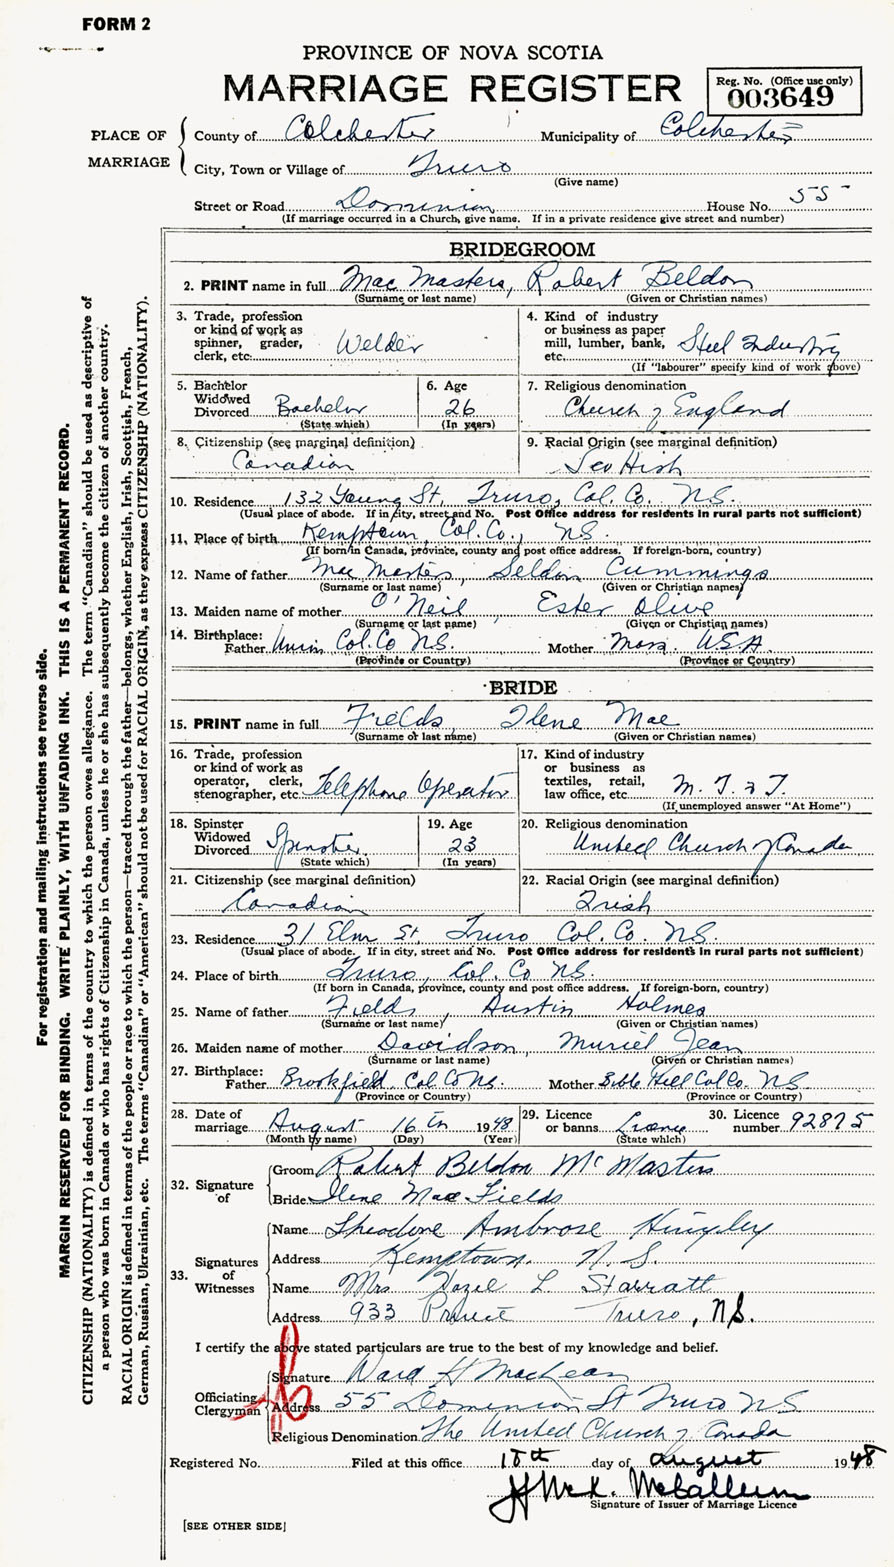 FORM 2
PROVINCE OF NOVA SCOTIA
MARRIAGE REGISTER
Reg. No. (Office use only)
003649
PLACE OF MARRIAGE
County of Colchester Municipality of Colchester
City, Town or Village of Truro
(Give name)
Street or Road Dominion House No. 55
(If marriage occurred in a Church, give name. If in a private residence give street and number)
BRIDEGROOM
2. PRINT name in full Mac Masters, Robert Beldon
(Surname or last name) (Given or Christian names)
3. Trade, profession or kind of work as spinner, grader, clerk, etc. Welder
4. Kind of industry or business as paper mill, lumber, bank, etc. Steel Industry
(If "labourer" specify kind of work above)
5. Bachelor Widowed Divorced Bachelor
(State which)
6. Age 26
(In years)
7. Religious denomination
Church of England
8. Citizenship (see marginal definition)
Canadian
9. Racial Origin (see marginal definition)
Scottish
10. Residence 132 Young St, Truro, Col. Co. N.S.
(Usual place of abode. If in city, street and No. Post Office address for residents in rural parts not sufficient)
11. Place of birth Kemptown, Col. Co., N.S.
(If born in Canada, province, county and post office address. If foreign-born, country)
12. Name of father Mac Masters, Seldon Cummings
(Surname or last name) (Given or Christian names)
13. Maiden name of mother O'Neil, Ester Olive
(Surname or last name) (Given or Christian names)
14. Birthplace:
Father Col. Co N.S. Mother Mass. U.S.A
(Province or Country) (Province or Country)
BRIDE
15. PRINT name in full Fields Ilene Mae
(Surname or last name) (Given or Christian names)
16. Trade, profession or kind of work as operator, clerk, stenographer, etc. Telephone Operator
17. Kind of industry or business as textiles, retail, law office, etc. M. T. & T.
(If unemployed answer "At Home")
18. Spinster Widowed Divorced Spinster
(State which)
19. Age 23
(In years)
20. Religious denomination
United Church of Canada
21. Citizenship (see marginal definition)
Canadian
22. Racial Origin (see marginal definition)
Irish
23. Residence 31 Elm St, Truro Col. Co. N.S.
(Usual place of abode. If in city, street and No. Post Office address for residents in rural parts not sufficient)
24. Place of birth Truro, Col. Co N.S.
(If born in Canada, province, county and post office address. If foreign-born, country)
25. Name of father Fields, Austin Holmes
(Surname or last name) (Given or Christian names)
26. Maiden name of mother Davidson, Muriel Jean
(Surname or last name) (Given or Christian names)
27. Birthplace:
Father Brookfield, Col Co N.S. Mother Bible Hill Col Co. N.S.
(Province or Country) (Province or Country)
28. Date of marriage August 16th 1948
(Month by name) (Day) (Year)
29. Licence or banns License
(State which)
30. Licence number 92875
32. Signature of
Groom Robert Beldon McMasters
Bride Ilene Mae Fields
33. Signatures of Witnesses
Name Theodore Ambrose Hingley
Address Kemptown, N. S.
Name Mrs Hazel L. Starratt
Address 933 Prince Truro, N.S.
I certify the above stated particulars are true to the best of my knowledge and belief.
Officiating Clergyman
Signature Ward H MacLean
Address 55 Dominion St Truro N S
Religious Denomination The United Church of Canada
Registered No. Filed at this office 18th day of August 1948
McCallum
Signature of Issuer of Marriage Licence
[SEE OTHER SIDE]
For registration and mailing instructions see reverse side.
MARGIN RESERVED FOR BINDING. WRITE PLAINLY, WITH UNFADING INK. THIS IS A PERMANENT RECORD.
CITIZENSHIP (NATIONALITY) is defined in terms of the country to which the person owes allegiance. The term "Canadian" should be used as descriptive of
a person who was born in Canada or who has rights of Citizenship in Canada, unless he or she has subsequently become the citizen of another country.
RACIAL ORIGIN is defined in terms of the people or race to which the person—traced through the father—belongs, whether English, Irish, Scottish, French,
German, Russian, Ukrainian, etc. The terms "Canadian" or "American" should not be used for RACIAL ORIGIN, as they express CITIZENSHIP (NATIONALITY).